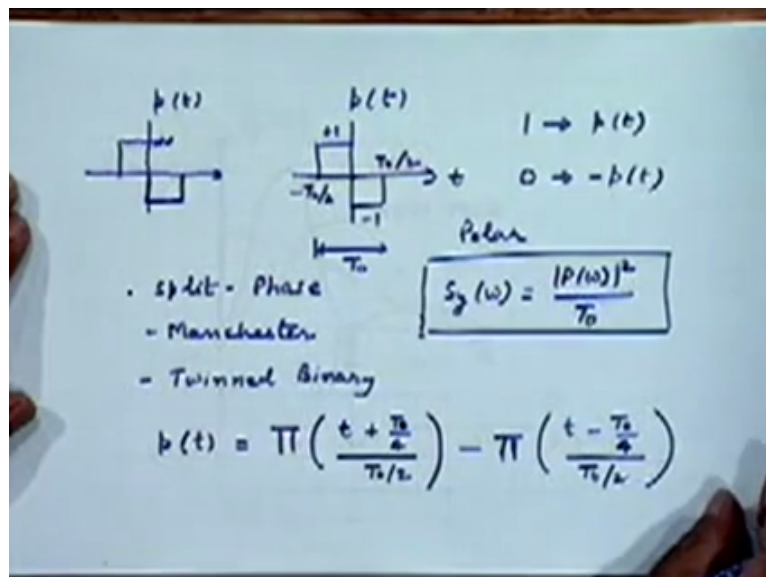 p(t)
p(t)
+1
T₀/2
-T₀/2
t
-1
T₀
1 → p(t)
0 → -p(t)
Polar
S_y(ω) = |P(ω)|² / T₀
. Split - Phase
- Manchester
- Twinned Binary
p(t) = Π( (t + T₀/4) / (T₀/2) ) - Π( (t - T₀/4) / (T₀/2) )